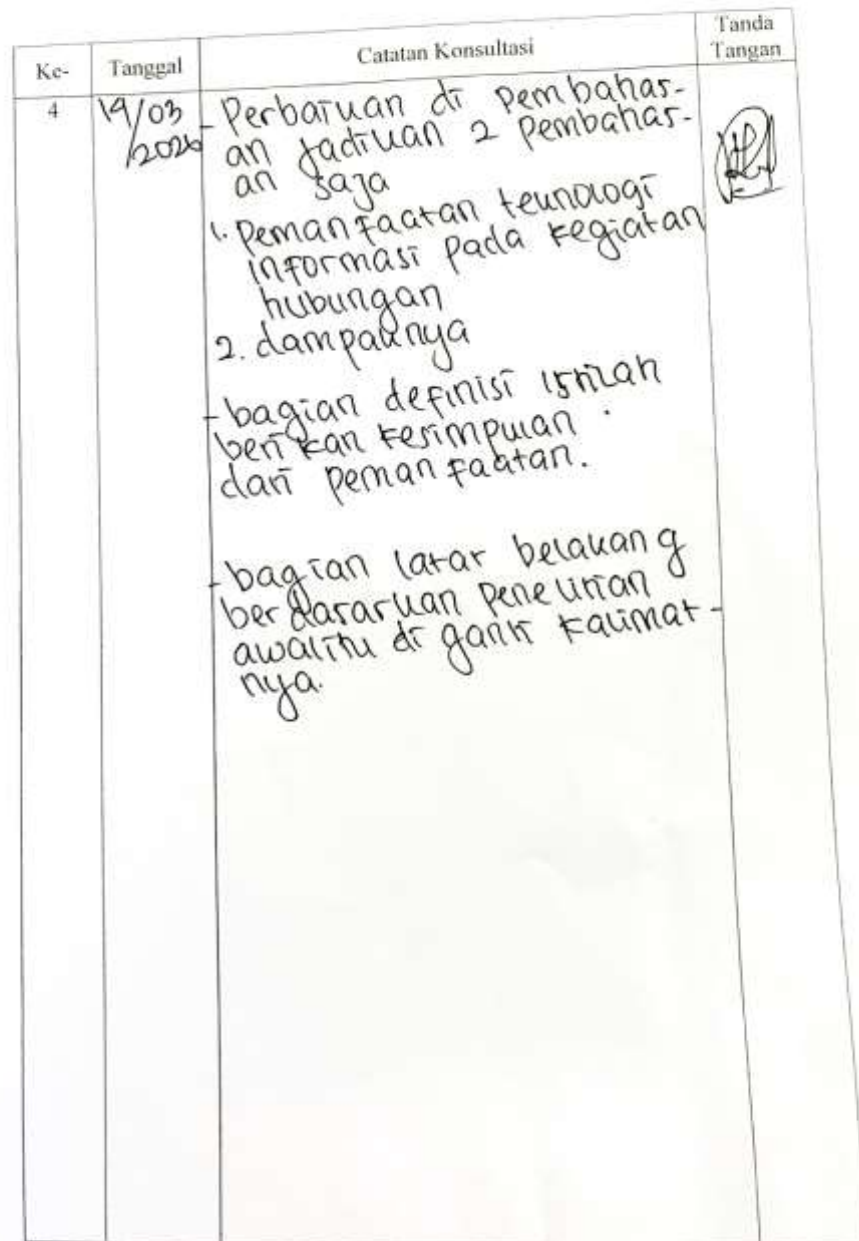 Ke-
Tanggal
Catatan Konsultasi
Tanda
Tangan
4
19/03
/2026
- Perbaikan di pembahas-
an jadikan 2 pembahas-
an saja
1. Pemanfaatan teknologi
informasi pada kegiatan
hubungan
2. dampaknya
- bagian definisi istilah
berikan kesimpulan
dari pemanfaatan.
- bagian latar belakang
berdasarkan penelitian
awal itu di ganti kalimat-
nya.